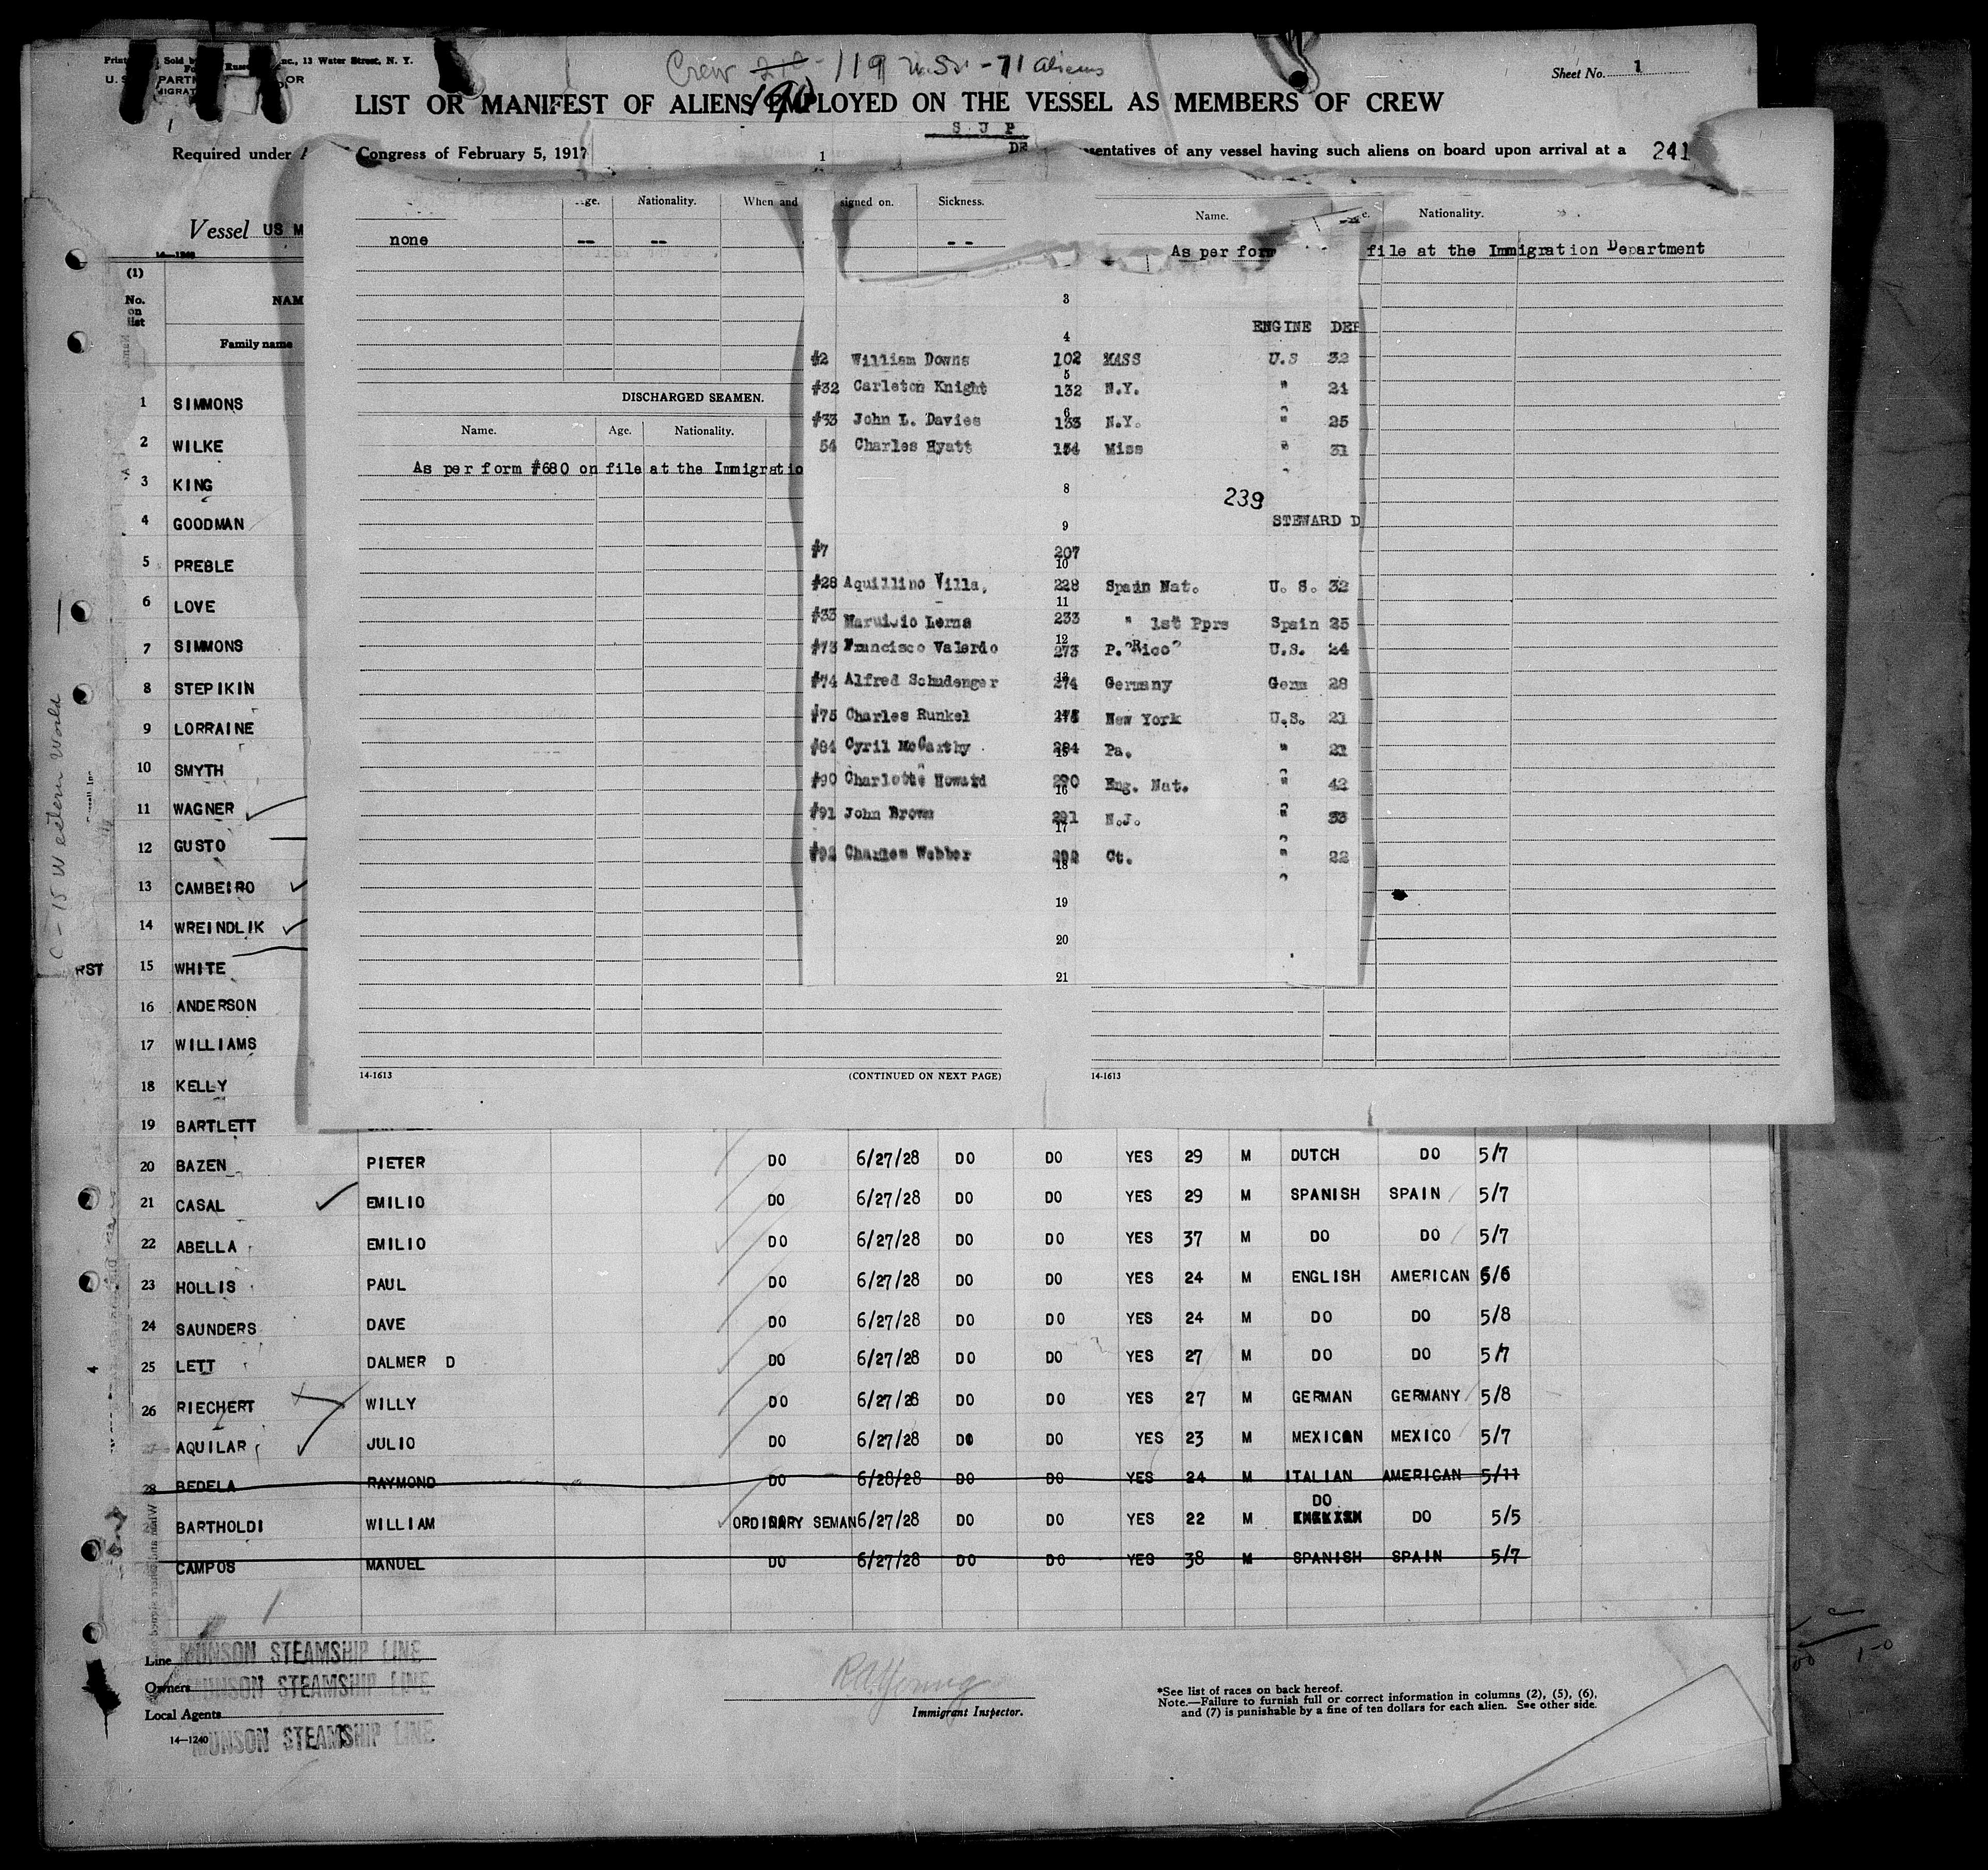 Crew 119 U.S. - 71 aliens
190
Sheet No. 1
Sold by
Inc., 13 Water Street, N. Y.
LIST OR MANIFEST OF ALIENS EMPLOYED ON THE VESSEL AS MEMBERS OF CREW
S U P
Required under
Congress of February 5, 1917
1
sentatives of any vessel having such aliens on board upon arrival at a
241
Vessel US M
(1)
No. on list
NAM
Family name
Nationality.
When and
signed on.
Sickness.
Name.
Nationality.
none -- -- --
As per form
file at the Immigration Department
3
ENGINE DEP
4
#2 William Downs 102 MASS U.S 32
5
#32 Carleton Knight 132 N.Y. " 24
6
#33 John L. Davies 133 N.Y. " 25
54 Charles Hyatt 154 Miss " 31
8
239
9
STEWARD D
#7 207
10
#28 Aquillino Villa, 228 Spain Nat. U. S. 32
11
#33 Lerna 233 " 1st Pprs Spain 25
12
#73 Francisco Valerdo 273 P. Rico U.S. 24
#74 Alfred Schudenger 274 Germany Germ 28
#75 Charles Runkel 275 New York U.S. 21
#84 Cyril McCarthy 284 Pa. " 21
#90 Charlotte Howard 290 Eng. Nat. " 42
16
#91 John Brown 291 N.J. " 33
17
#92 Charles Webber 292 Ct. " 22
18
19
20
21
DISCHARGED SEAMEN.
Name. Age. Nationality.
As per form #680 on file at the Immigratio
14-1613
(CONTINUED ON NEXT PAGE)
14-1613
C - 15 Western World
RST
1 SIMMONS
2 WILKE
3 KING
4 GOODMAN
5 PREBLE
6 LOVE
7 SIMMONS
8 STEPIKIN
9 LORRAINE
10 SMYTH
11 WAGNER
12 GUSTO
13 CAMBEIRO
14 WREINDLIK
15 WHITE
16 ANDERSON
17 WILLIAMS
18 KELLY
19 BARTLETT
20 BAZEN PIETER DO 6/27/28 DO DO YES 29 M DUTCH DO 5/7
21 CASAL EMILIO DO 6/27/28 DO DO YES 29 M SPANISH SPAIN 5/7
22 ABELLA EMILIO DO 6/27/28 DO DO YES 37 M DO DO 5/7
23 HOLLIS PAUL DO 6/27/28 DO DO YES 24 M ENGLISH AMERICAN 5/6
24 SAUNDERS DAVE DO 6/27/28 DO DO YES 24 M DO DO 5/8
25 LETT DALMER D DO 6/27/28 DO DO YES 27 M DO DO 5/7
26 RIECHERT WILLY DO 6/27/28 DO DO YES 27 M GERMAN GERMANY 5/8
AQUILAR JULIO DO 6/27/28 DO DO YES 23 M MEXICAN MEXICO 5/7
28 BEDELA RAYMOND DO 6/28/28 DO DO YES 24 M ITALIAN AMERICAN 5/11
DO
BARTHOLDI WILLIAM ORDINARY SEMAN 6/27/28 DO DO YES 22 M DO 5/5
CAMPOS MANUEL DO 6/27/28 DO DO YES 38 M SPANISH SPAIN 5/7
Line MUNSON STEAMSHIP LINE
Owners MUNSON STEAMSHIP LINE
Local Agents
MUNSON STEAMSHIP LINE
14-1240
Immigrant Inspector.
*See list of races on back hereof.
Note.—Failure to furnish full or correct information in columns (2), (5), (6),
and (7) is punishable by a fine of ten dollars for each alien. See other side.